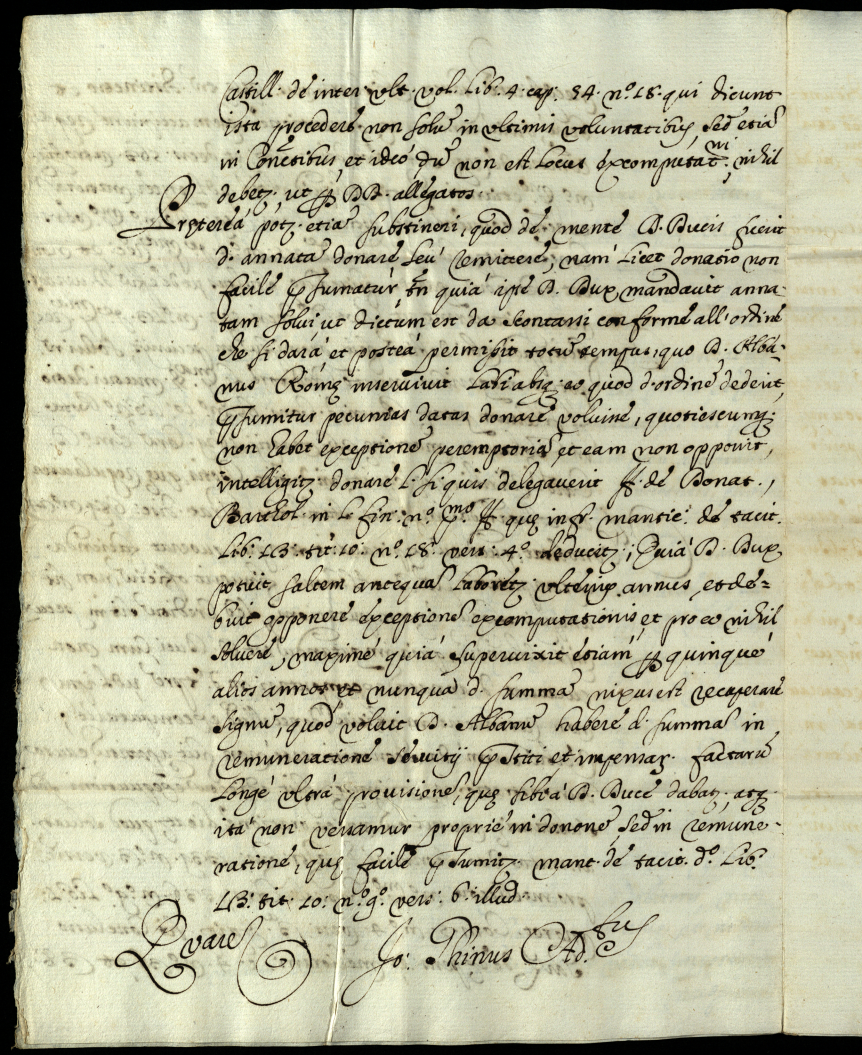 Castill. de inter vlt. vol. Lib. 4. cap. 54. n.º 18. qui dicunt
ista procedere non solũ in vltimis voluntatibus, sed etiã
in Con̄ctibus et ideò dũ non est locus excomputat.ni, nihil
debetz. ut DD. allegatos.
Pręterea potz. etiã substineri, quod de mente D. Ducis fuerit
d. annatã donare seù remittere, nam licet donatio non
facile p̄sumatur tñ quià ipse D. Dux mandavit anna-
tam solvi, ut dictum est da scontarsi conforme all'ordine
che si darà, et posteà permisit totũ tempus, quo D. Alba-
nus Romę inservivit Labi absq; eo quod d. ordinẽ dederit,
p̄sumitur pecunias datas donare voluisse, quotiescumq;
non habet exceptionẽ peremptoriã, et eam non opponit,
intelligitz. donare l. si quis delegaverit ff. de Donat.,
Barthol. in l. fin. n.º ff. quę in fr. mantic. de tacit.
Lib. 13. tit. 10. n.º 18. vers. 4.º deducitz; Quià D. Dux
potuit saltem antequã Laboretz. vlterius annus, et de=
buit opponere exceptionẽ excomputationis, et pro eo nihil
solvere, maximè quià supervixit etiam quinque
alios annos, et nunquã d. summã nixus est recuperare
signũ, quod voluit D. Albanũ habere d. summã in
remunerationẽ servitij p̄stiti et impensaꝝ. factarũ
Longè vltrà provisionẽ, quę sibi à D. Duce dabatz. atq;
ità non versamur propriè in dononẽ, sed in remune-
rationẽ, quę facilè p̄sumitz. mant. de tacit. d.º Lib.
13. tit. 10. n.º 9. vers. 6. illud
Quare
Jo: Thinus Ad.tus